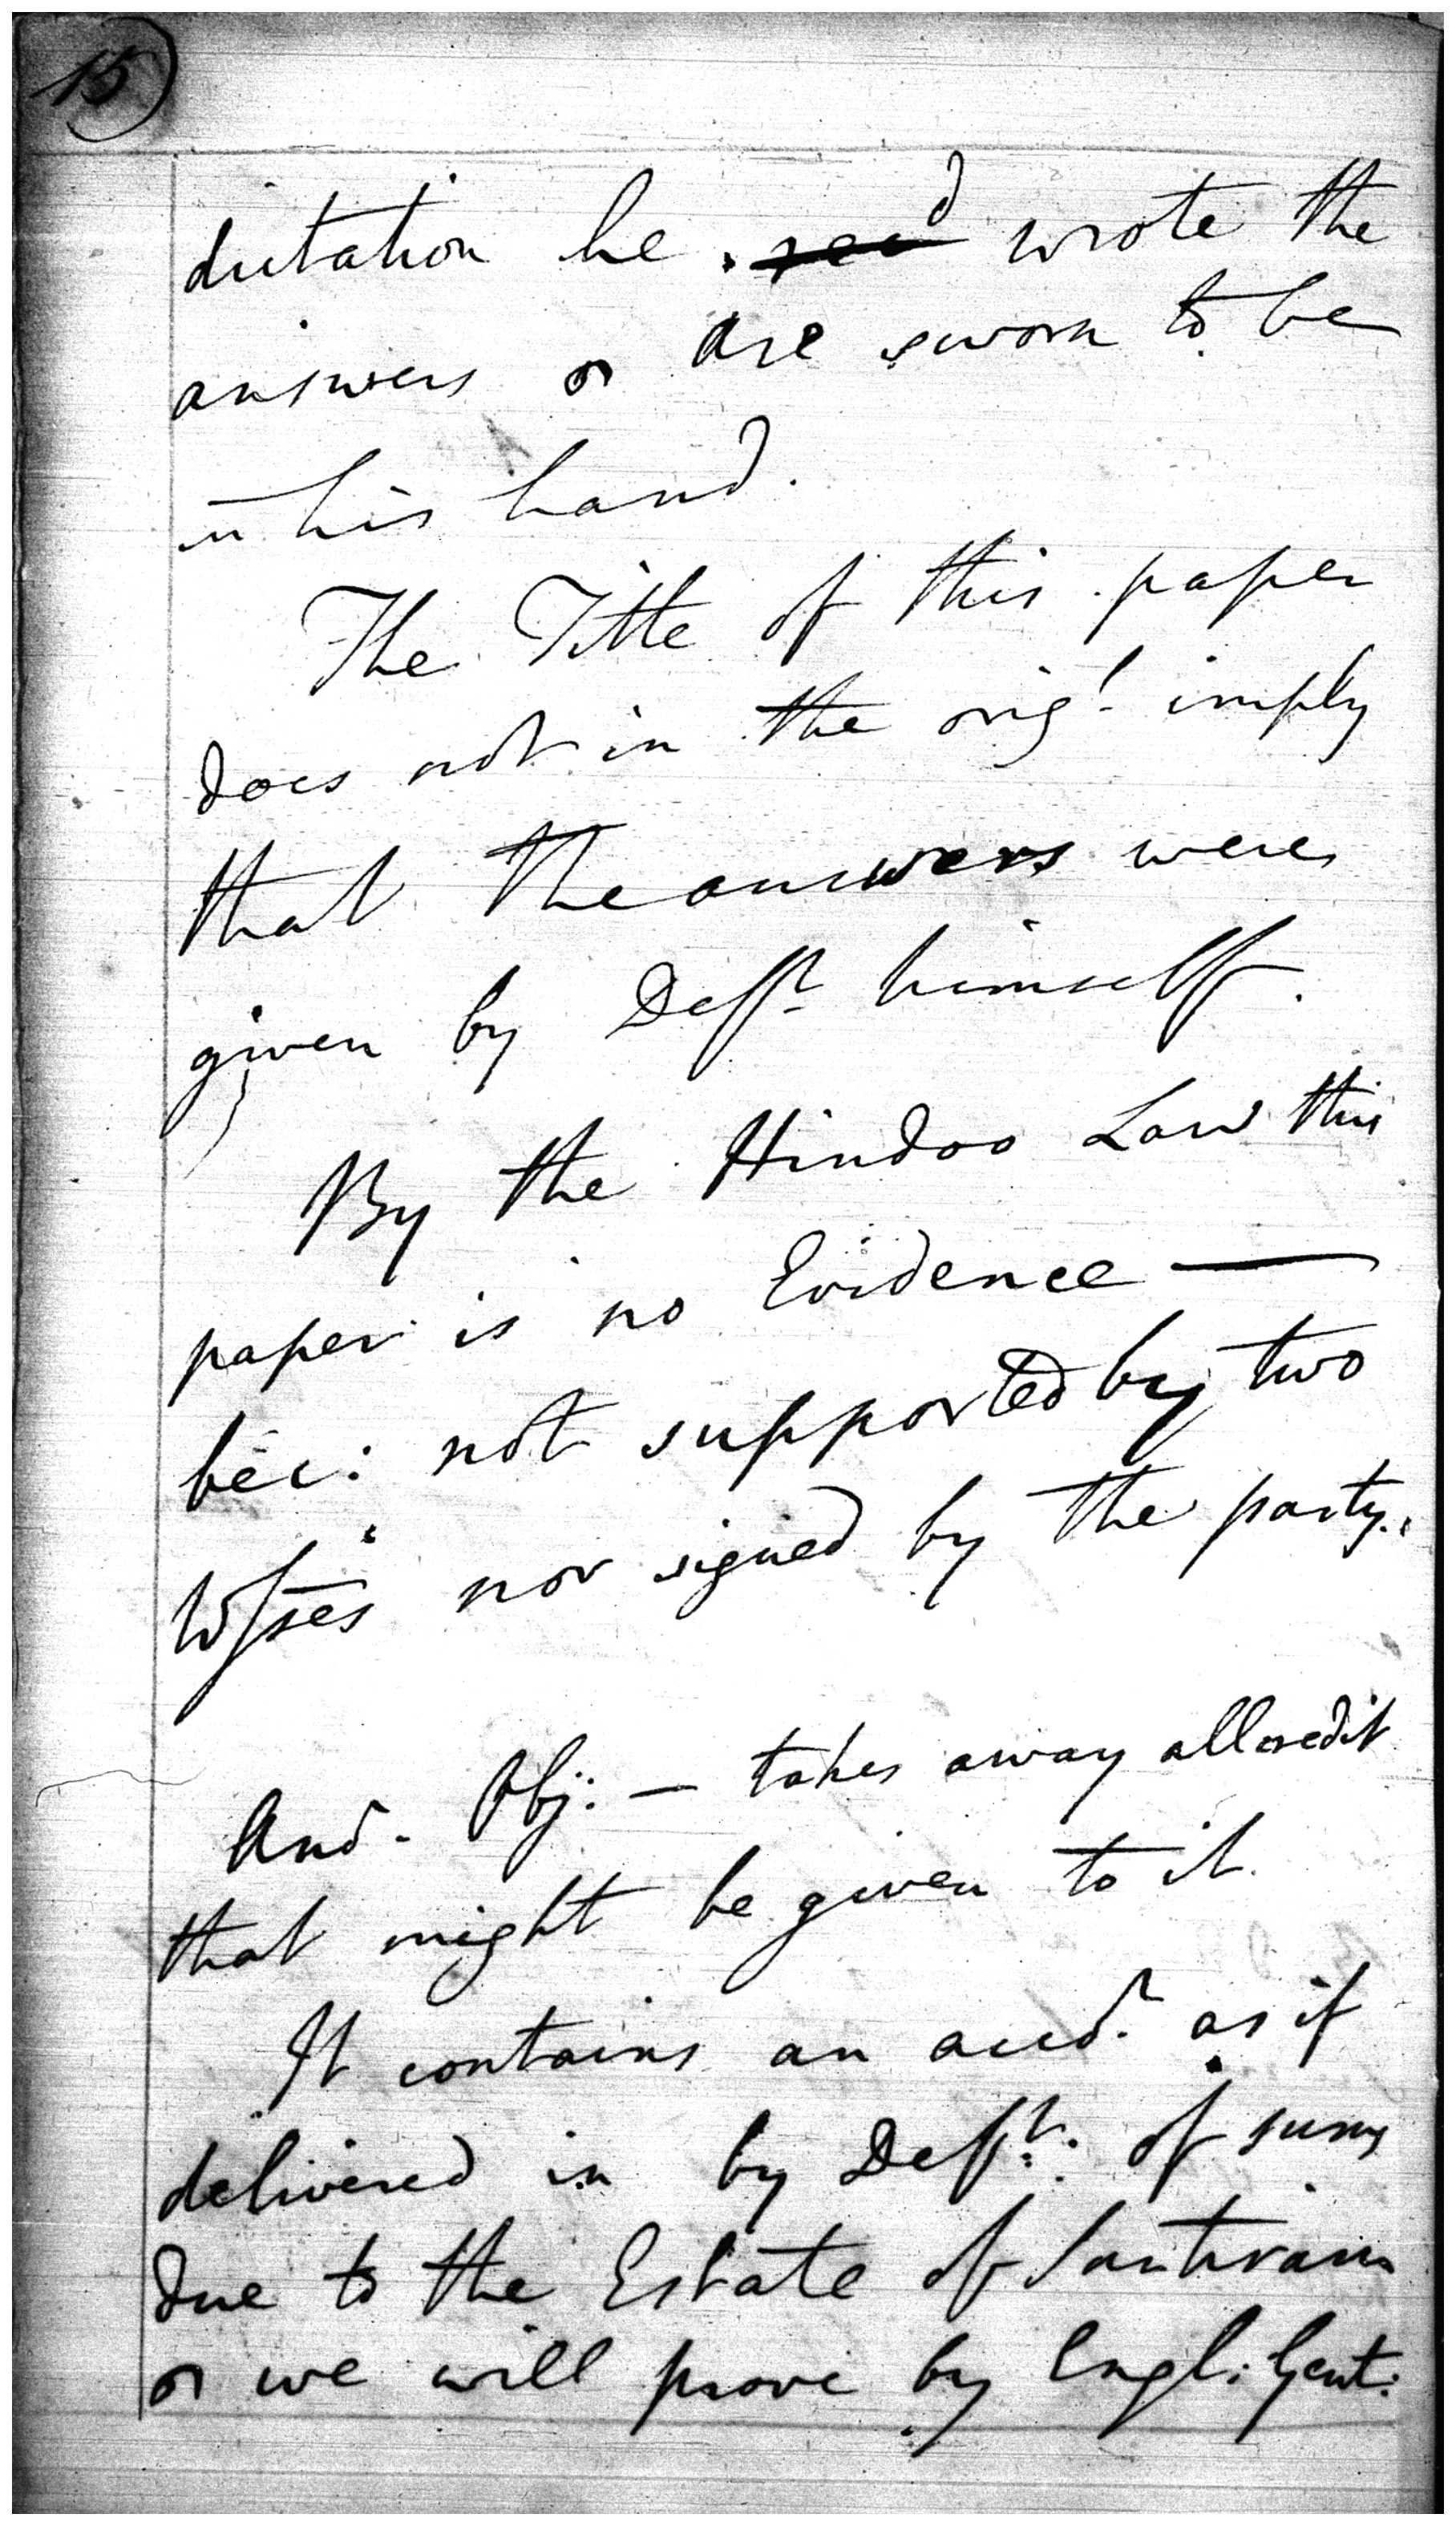 15
dictation he wrote the
answers or are sworn to be
in his hand.
The Title of this paper
does not in the orig.l imply
that the answers were
given by Deft. himself.
By the Hindoo Law this
paper is no Evidence —
bec: not supported by two
Wsses nor signed by the party.
And. Obj: — takes away all credit
that might be given to it.
It contains an acct. as if
delivered in by Deft. of sums
due to the Estate of Santiram
or we will prove by Engl: Gent: